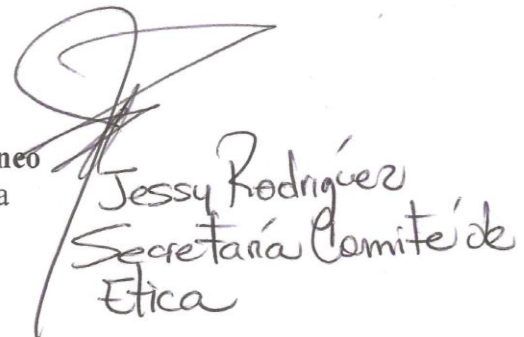 neo
a
Jessy Rodríguez
Secretaría Comité de
Etica